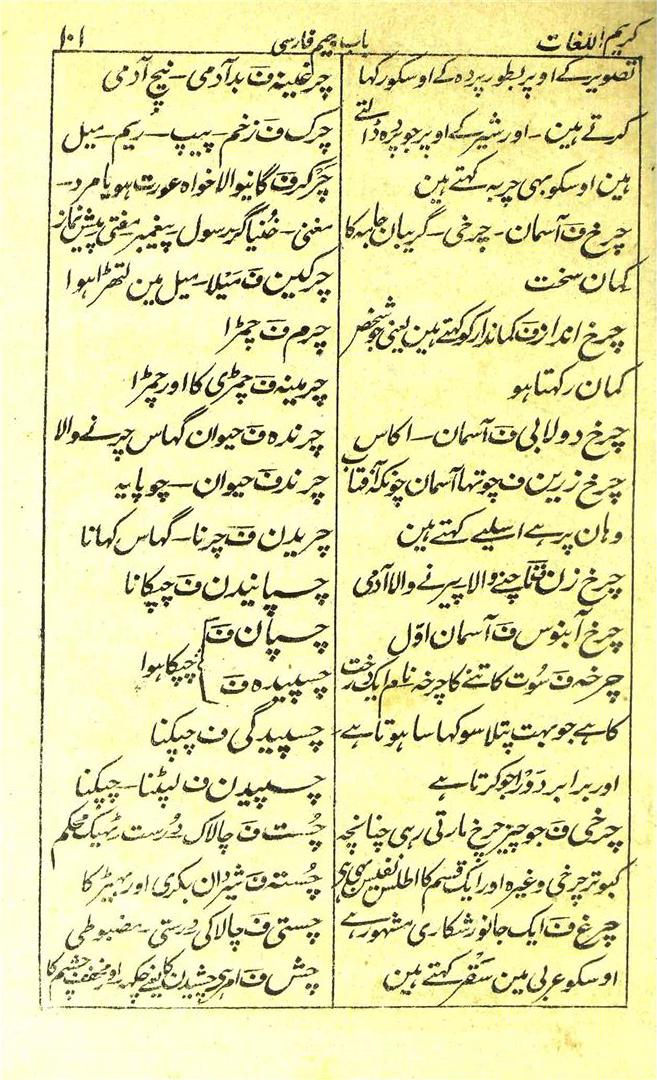 کریم اللغات
باب جیم فارسی
۱۰۱
تصویر کے اوپر بطور پردہ کے اوسکو رکہا
کرتے ہین - اور شیر کے اوپر جو پردہ ڈالتے
ہین اوسکو بہی چربہ کہتے ہین
چرخ ف آسمان - چرخی - گریبان جامہ کا
کمان سخت
چرخ انداز ف کماندار کو کہتے ہین یعنی جو شخص
کمان رکہتا ہو
چرخ دولابی ف آسمان - اکاس
چرخ زرین ف چوتہا آسمان چونکہ آفتاب
وہان پر ہے اسلیے کہتے ہین
چرخ زن ف ناچنے والا پیرنے والا آدمی
چرخ آبنوس ف آسمان اوّل
چرخہ ف سُوت کاتنے کا چرخہ نام ایک درخت
کا ہے جو بہت پتلا سوکہا سا ہوتا ہے
اور برابر دَوڑا جو کرتا ہے
چرخی ف جو چیز چرخ مارتی رہی چنانچہ
کبوتر چرخی وغیرہ اور ایک قسم کا اطلس نفیس بہی ہے
چرغ ف ایک جانور شکاری مشہور ہے
اوسکو عربی مین سَقَر کہتے ہین
چرغینہ ف بد آدمی - نیچ آدمی
چرک ف زخم - پیپ - ریم - میل
چَرگر ف گانیوالا خواہ عورت ہو یا مرد -
مغنی - خُنیاگر رسول - پیغمبر مفتی پیش نماز
چرکین ف مَیلا - میل مین لتھڑا ہوا
چرم ف چمڑا
چرمینہ ف چمڑی کا اور چمڑا
چرندہ ف حیوان گہاس چرنے والا
چرند ف حیوان - چوپایہ
چریدن ف چرنا - گہاس کہانا
چسپانیدن ف چپکانا
چسپان ف
چسپیدہ ف
چپکا ہوا
چسپیدگی ف چپکنا
چسپیدن ف لپٹنا - چپکنا
چُست ف چالاک دُرست ٹہیک محکم
چُستہ ف شیردان بکری اور بہیڑ کا
چستی ف چالاکی درستی - مضبوطی
چش ف امر ہے چشیدن کا یعنے چکہہ اور مخفف چشم کا